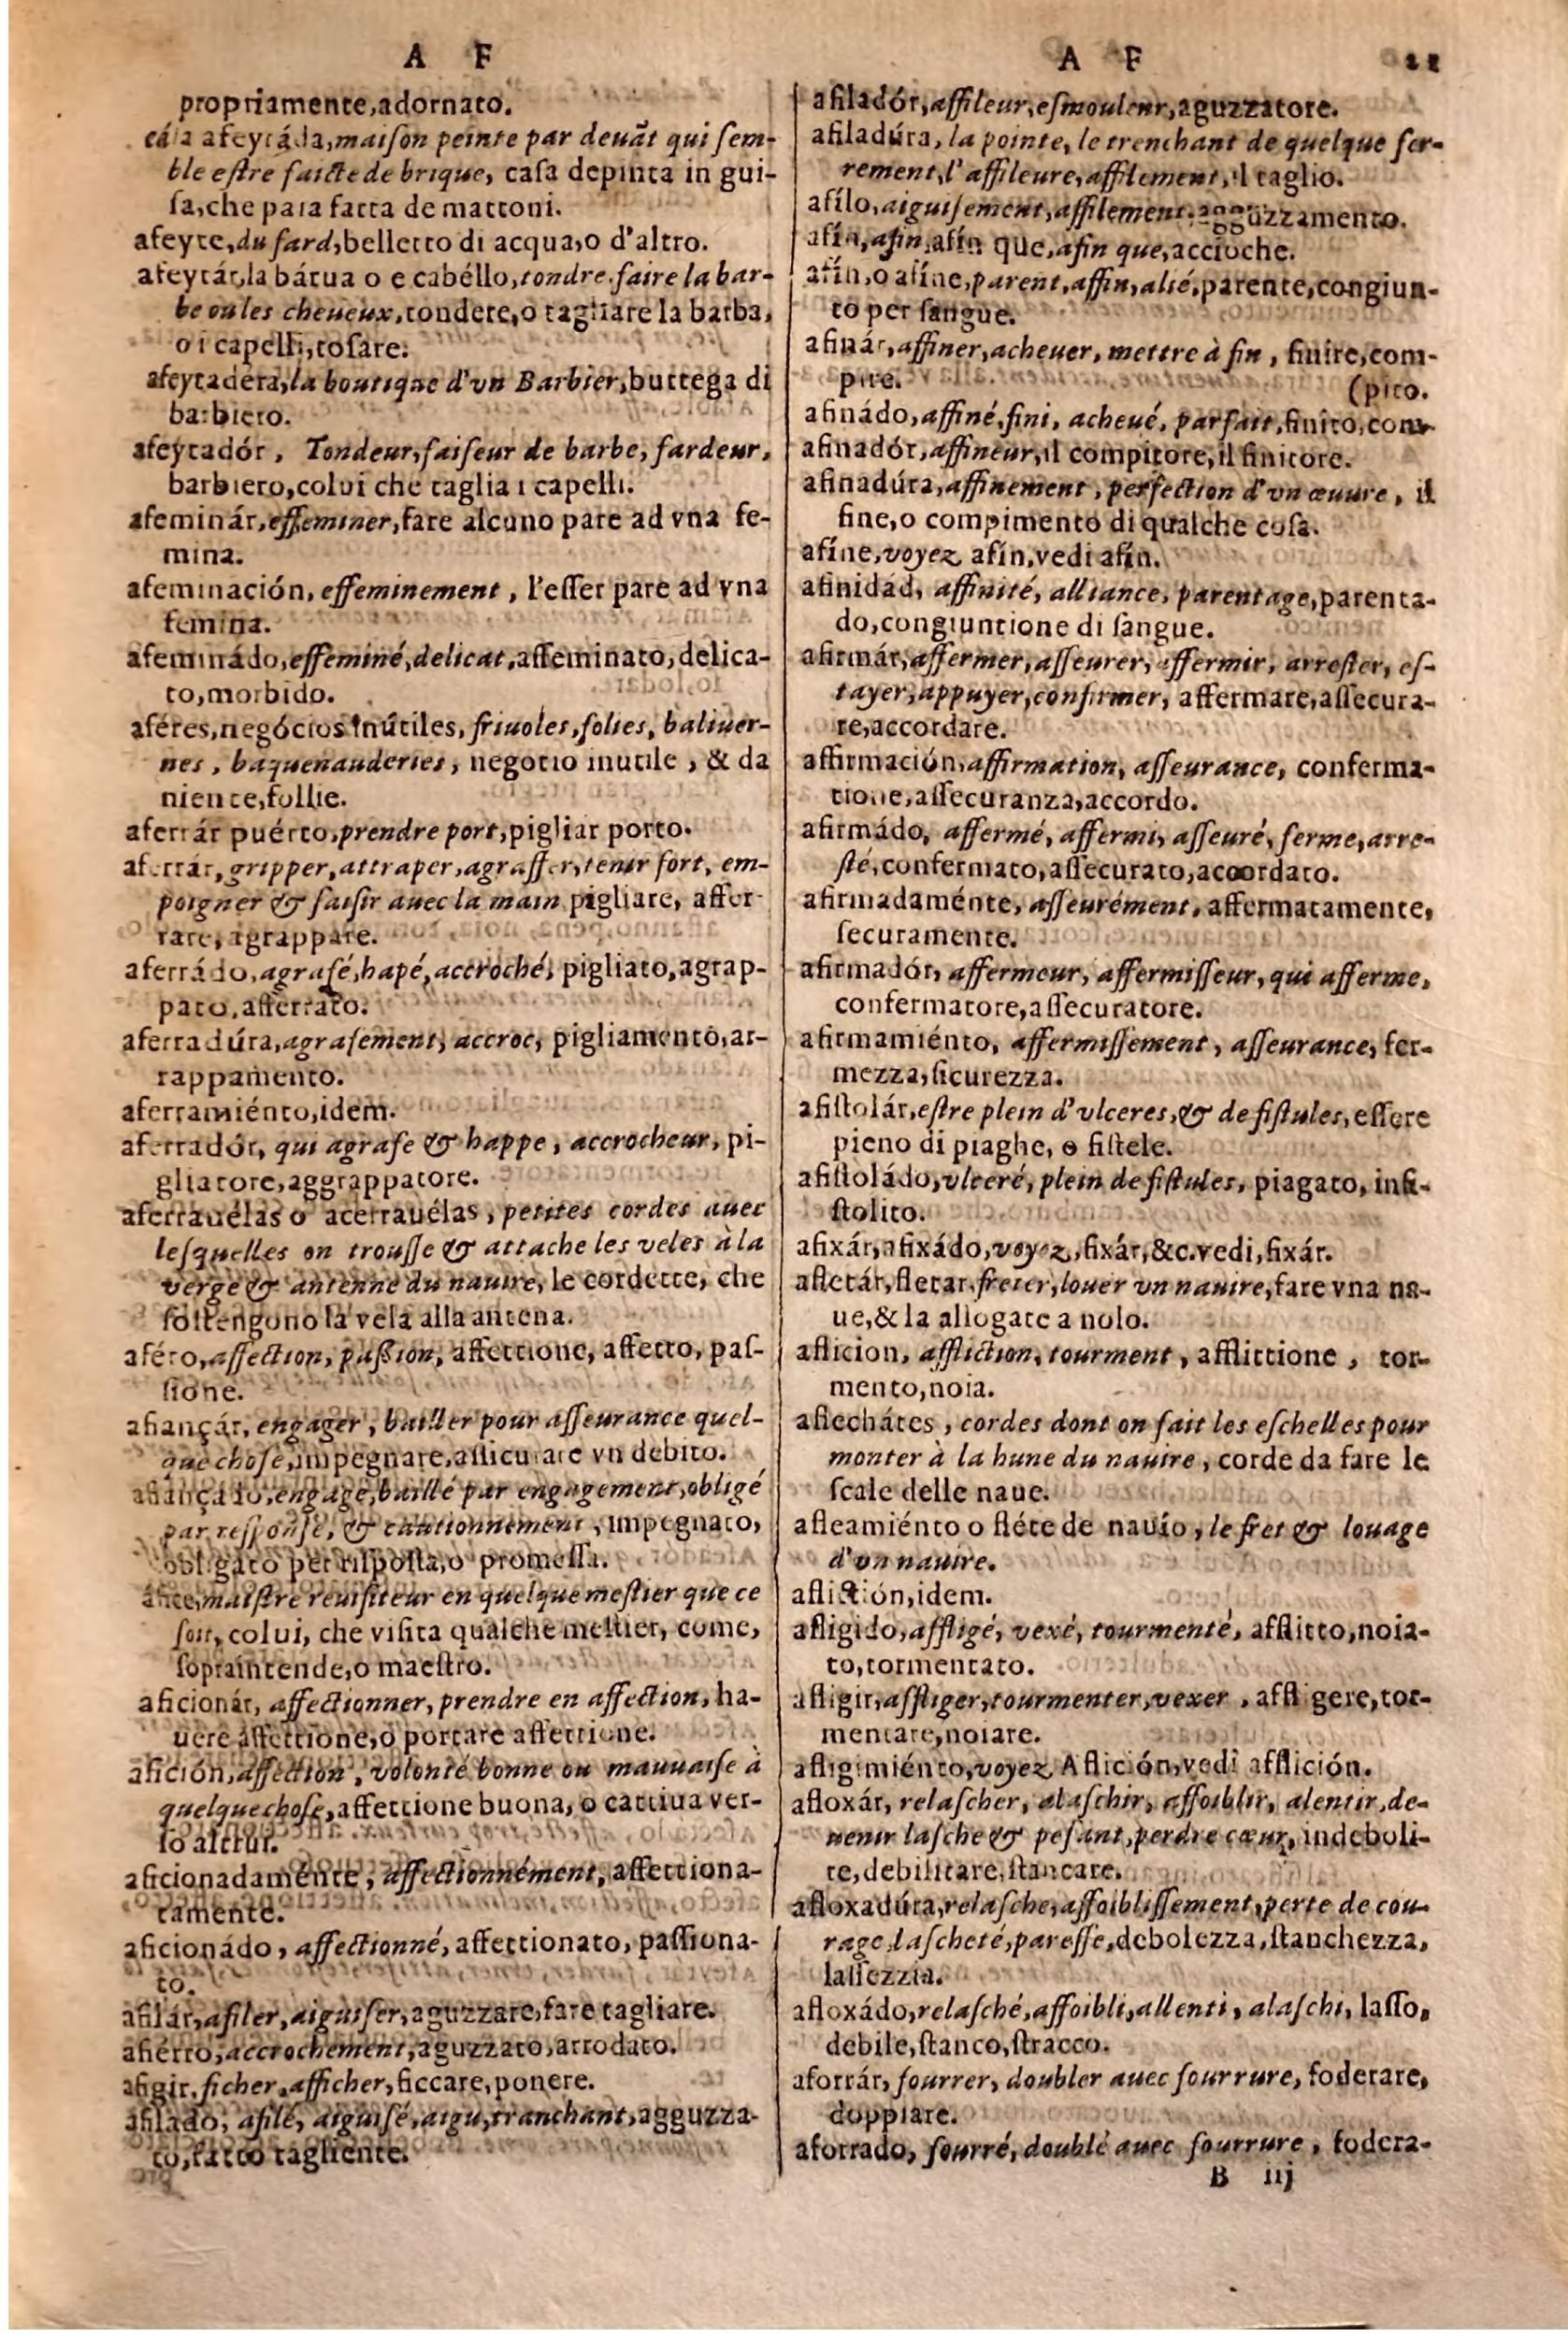 A F
propriamente,adornato.
cása afeytáda,maiſon peinte par deuãt qui ſem-
ble eſtre faicte de brique, caſa depinta in gui-
ſa,che paia fatta de mattoni.
afeyte,du fard,belletto di acqua,o d'altro.
afeytár,la bárua o e cabéllo,tondre,faire la bar-
be ou les cheueux,tondere,o tagliare la barba,
o i capelli,toſare.
afeytadera,la boutique d'vn Barbier,buttega di
barbiero.
afeytadór, Tondeur,faiſeur de barbe, fardeur,
barbiero,colui che taglia i capelli.
afeminár,effeminer,fare alcuno pare ad vna fe-
mina.
afeminación, effeminement, l'eſſer pare ad vna
femina.
afeminádo,effeminé,delicat,affeminato,delica-
to,morbido.
aféres,negócios inútiles, friuoles,folies, baliuer-
nes, baquenauderies, negotio inutile, & da
niente,follie.
aferrár puérto,prendre port,pigliar porto.
aferrár,gripper,attraper,agraffer,tenir fort, em-
poigner & ſaiſir auec la main pigliare, affer-
rare, agrappare.
aferrádo,agrafé,hapé,accroché, pigliato,agrap-
pato,afferrato.
aferradúra,agrafement, accroc, pigliamento,ar-
rappamento.
aferramiénto,idem.
aferradór, qui agrafe & happe, accrocheur, pi-
gliatore,aggrappatore.
aferrauélas o acerrauélas, petites cordes auec
leſquelles on trouſſe & attache les veles à la
verge & antenne du nauire, le cordette, che
ſoſtengono la vela alla antena.
aféto,affection, paſsion, affettione, affetto, paſ-
ſione.
afiançár, engager, bailler pour aſſeurance quel-
que choſe,impegnare,aſſicurare vn debito.
afiançádo,engagé,baillé par engagement,obligé
par reſponſe, & cautionnement, impegnato,
obligato per riſpoſta,o promeſſa.
áfice,maiſtre reuiſiteur en quelque meſtier que ce
ſoit, colui, che viſita qualche meſtier, come,
ſopraintende,o maeſtro.
aficionár, affectionner, prendre en affection, ha-
uere affettione,o portare affettione.
afición,affection, volonté bonne ou mauuaiſe à
quelque choſe,affettione buona, o cattiua ver-
ſo altrui.
aficionadaménte, affectionnément, affettiona-
tamente.
aficionádo, affectionné, affettionato, paſſiona-
to.
afilár,afiler,aiguiſer,aguzzare,fare tagliare.
afiérro,accrochement,aguzzato,arrodato.
afigir,ficher,afficher,ficcare,ponere.
afilado, afilé, aiguiſé,aigu,tranchant,agguzza-
to,fatto tagliente.
A F 21
afiladór,affileur,eſmouleur,aguzzatore.
afiladúra, la pointe, le trenchant de quelque fer-
rement,l'affileure,affilement,il taglio.
afílo,aiguiſement,affilement,agguzzamento.
afín,afin,afín que,afin que,accioche.
afín,o afíne,parent,affin,alié,parente,congiun-
to per ſangue.
afinár,affiner,acheuer, mettre à fin, finire,com-
pire. (pito.
afinádo,affiné,fini, acheué, parfait,finito,com-
afinadór,affineur,il compitore,il finitore.
afinadúra,affinement, perfection d'vn œuure, il
fine,o compimento di qualche coſa.
afíne,voyez afín,vedi afín.
afinidád, affinité, alliance, parentage,parenta-
do,congiuntione di ſangue.
afirmár,affermer,aſſeurer,affermir, arreſter, eſ-
tayer,appuyer,confirmer, affermare,aſſecura-
re,accordare.
affirmación,affirmation, aſſeurance, conferma-
tione,aſſecuranza,accordo.
afirmádo, affermé, affermi, aſſeuré, ferme,arre-
ſté,confermato,aſſecurato,accordato.
afirmadaménte, aſſeurément, affermatamente,
ſecuramente.
afirmadór, affermeur, affermiſſeur, qui afferme,
confermatore,aſſecuratore.
afirmamiénto, affermiſſement, aſſeurance, fer-
mezza,ſicurezza.
afiſtolár,eſtre plein d'vlceres,& de fiſtules,eſſere
pieno di piaghe, o fiſtele.
afiſtoládo,vlceré, plein de fiſtules, piagato, infi-
ſtolito.
afixár,afixádo,voyez,fixár,&c.vedi,fixár.
afletár,fletar,freter,louer vn nauire,fare vna na-
ue,& la allogate a nolo.
aflicion, affliction, tourment, afflittione, tor-
mento,noia.
aflechátes, cordes dont on fait les eſchelles pour
monter à la hune du nauire, corde da fare le
ſcale delle naue.
afleamiénto o fléte de nauío, le fret & louage
d'vn nauire.
aflictión,idem.
afligido,affligé, vexé, tourmenté, afflitto,noia-
to,tormentato.
afligir,affliger,tourmenter,vexer, affligere,tor-
mentare,noiare.
afligimiénto,voyez Aflición,vedi afflición.
afloxár, relaſcher, alaſchir, affoiblir, alentir,de-
uenir laſche & peſant,perdre cœur, indeboli-
re,debilitare,ſtancare.
afloxadúra,relaſche,affoibliſſement,perte de cou-
rage,laſcheté,pareſſe,debolezza,ſtanchezza,
laſſezzia.
afloxádo,relaſché,affoibli,allenti, alaſchi, laſſo,
debile,ſtanco,ſtracco.
aforrár, fourrer, doubler auec fourrure, foderare,
doppiare.
aforrado, fourré,doublé auec fourrure, fodera-
B iij